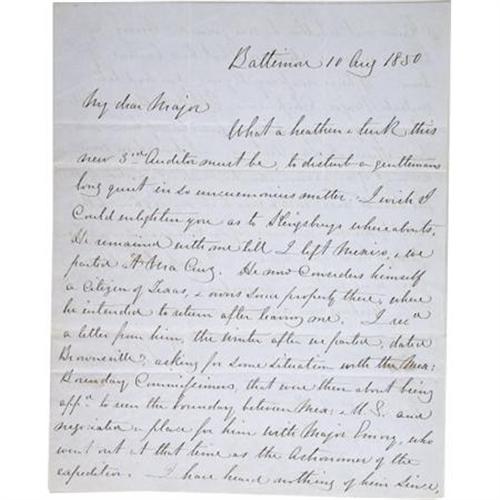 Baltimore 10 Aug 1850
My dear Major
What a heathen & turk this
new 3rd Auditor must be, to disturb a gentlemans
long quiet in so unceremonious matter. I wish I
Could enlighten you as to Kingsburys whereabouts.
He remained with me till I left Mexico, & we
parted at Vera Cruz. He now Considers himself
a Citizen of Texas, & owns some property there, where
he intended to return after leaving me. I recd
a letter from him, the winter after we parted, dated
Brownsville, asking for some Situation with the Mex:
Boundary Commissioners, that were then about being
appd to run the boundary between Mex: & U.S. and
negociated a place for him with Major Emory, who
went out at that time as the Astronomer of the
expedition. I have heard nothing of him Since,